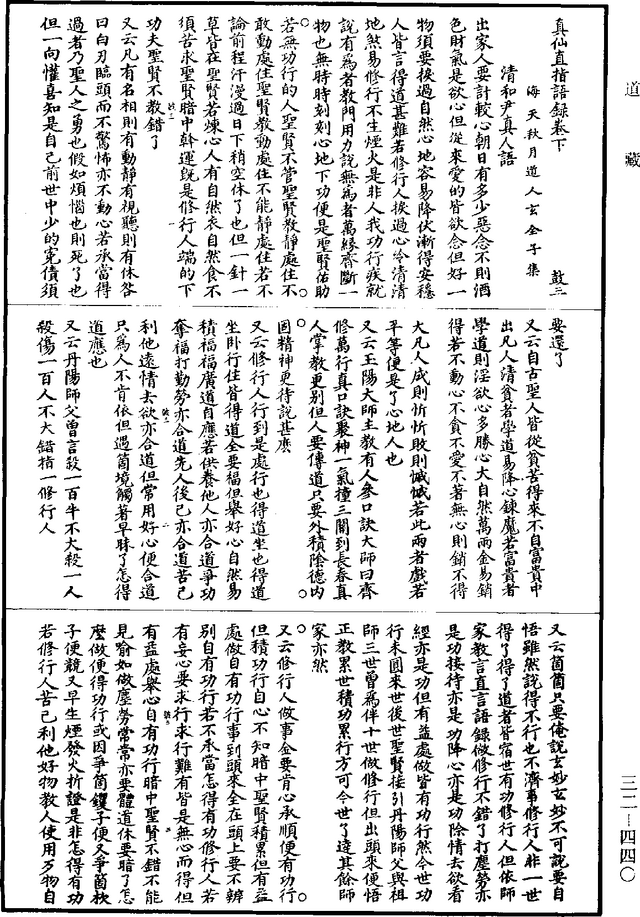 道藏
真仙直指語錄卷下 鼓三
海天秋月道人玄全子集
清和尹真人語
出家人要計較心朝日有多少惡念不則酒
色財氣是欲心但從來愛的皆欲念但好一
物須要挨過自然心地容易降伏漸得安穩
人皆言得道甚難若修行人挨過心令清清
地煞易修行不生煙火是非人我功行疾就
說有為者教門用力說無為者萬緣齊斷一
物也無時時刻刻心地下功便是聖賢佑助
若無功行的人聖賢不管聖賢教靜處住不
敢動處住聖賢教動處住不能靜處住若不
論前程汗漫過日下稍空休了也但一針一
草皆在聖賢若煉心人有自然衣自然食不
須苦求聖賢暗中幹運既是修行人端的下
功夫聖賢不教錯了
又云凡有名相則有動靜有視聽則有休咎
曰白刃臨頭而不驚怖亦不動心若承當得
過者乃聖人之勇也假如煩惱也則死了也
但一向懽喜知是自己前世中少的冤債須
要還了
又云自古聖人皆從貧苦得來不自富貴中
出凡人清貧者學道易降心鍊魔若富貴者
學道則淫欲心多勝心大自然萬兩金易銷
得若不動心不貪不愛不著無心則銷不得
大凡人成則忻忻敗則慽慽若此兩者戲若
平等便是了心地人也
又云玉陽大師主教有人參口訣大師曰齊
修萬行真口訣聚神一氣撞三關到長春真
人掌教更別但人要傳道只要外積陰德內
固精神更待說甚麽
又云修行人行到是處行也得道坐也得道
坐卧行住皆得道全要福但舉好心自然易
積福福廣道自應若供養他人亦合道爭功
奪福打動勞亦合道先人後己亦合道苦己
利他遠情去欲亦合道但常用好心便合道
只為人不肯依但遇箇境觸著早昧了怎得
道應也
又云丹陽師父曾言殺一百牛不大殺一人
殺傷一百人不大錯指一修行人
又云箇箇只要俺說玄妙玄妙不可說要自
悟雖然說得不行也不濟事修行人非一世
得了得了道者皆宿世有功修行人但依師
家教言直言語錄做修行不錯了打塵勞亦
是功接待亦是功降心亦是功除情去欲看
經亦是功但有益處做皆有功行然今世功
行未圓來世後世聖賢接引丹陽師父與祖
師三世曾為伴十世做修行但出頭來便悟
正教累世積功累行方可今世了達其餘師
家亦然
又云修行人做事全要肯心承順便有功行
但積功行自心不知暗中聖賢積累但有益
處做自有功行事到頭來全在頭上要不辨
別自有功行若不承當怎得有功修行人若
有妄心要求行求行難有皆是無心而得但
有益處舉心自有功行暗中聖賢不錯不能
見喻如做塵勞常常亦要體道休要暗了怎
麼做便得功行或因爭箇钁子便又爭箇杴
子便競又早生煙發火折證是非怎得有功
若修行人苦己利他好物教人使用万物自
三二—四四〇